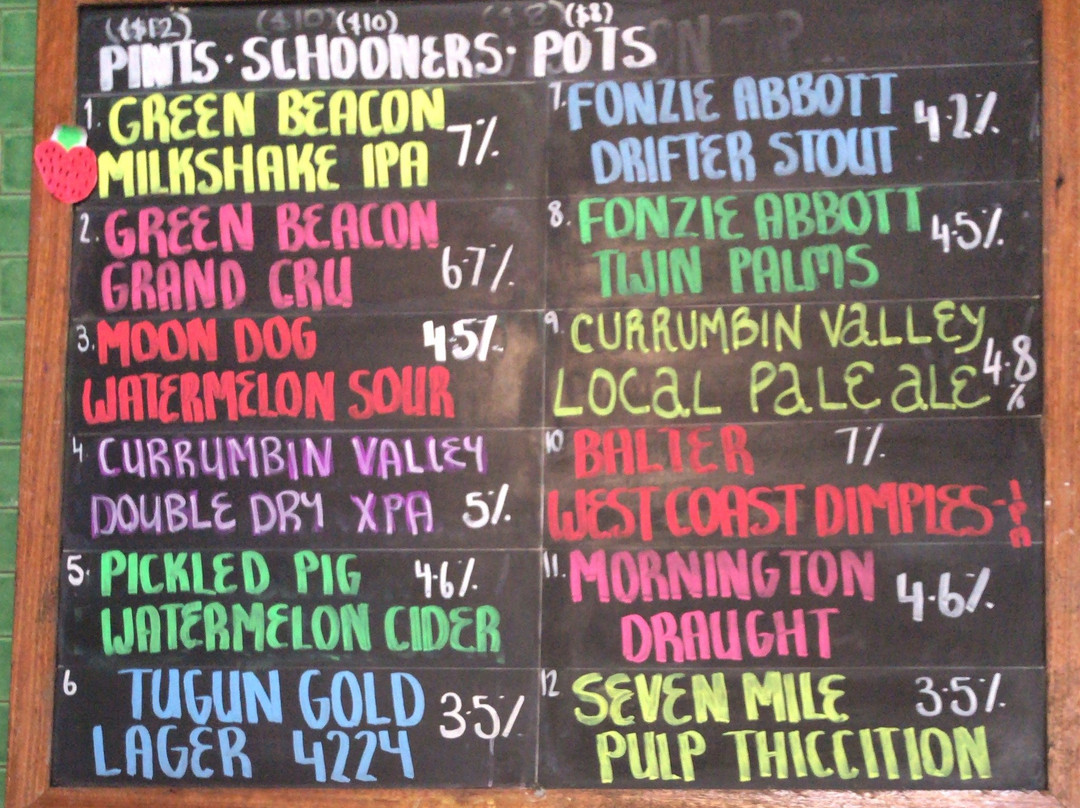 ($12) ($10) ($8)
PINTS · SCHOONERS · POTS
1. GREEN BEACON
MILKSHAKE IPA 7%
2. GREEN BEACON
GRAND CRU 6·7%
3. MOON DOG 4·5%
WATERMELON SOUR
4 CURRUMBIN VALLEY
DOUBLE DRY XPA 5%
5. PICKLED PIG 4·6%
WATERMELON CIDER
6 TUGUN GOLD
LAGER 4224 3·5%
7. FONZIE ABBOTT
DRIFTER STOUT 4·2%
8. FONZIE ABBOTT
TWIN PALMS 4·5%
9. CURRUMBIN VaLLEY
LOCaL PaLE aLE 4·8%
10 BALTER 7%
WEST COAST DIMPLES-IPA
11. MORNINGTON
DRAUGHT 4·6%
12 SEVEN MILE 3·5%
PULP THICCITION